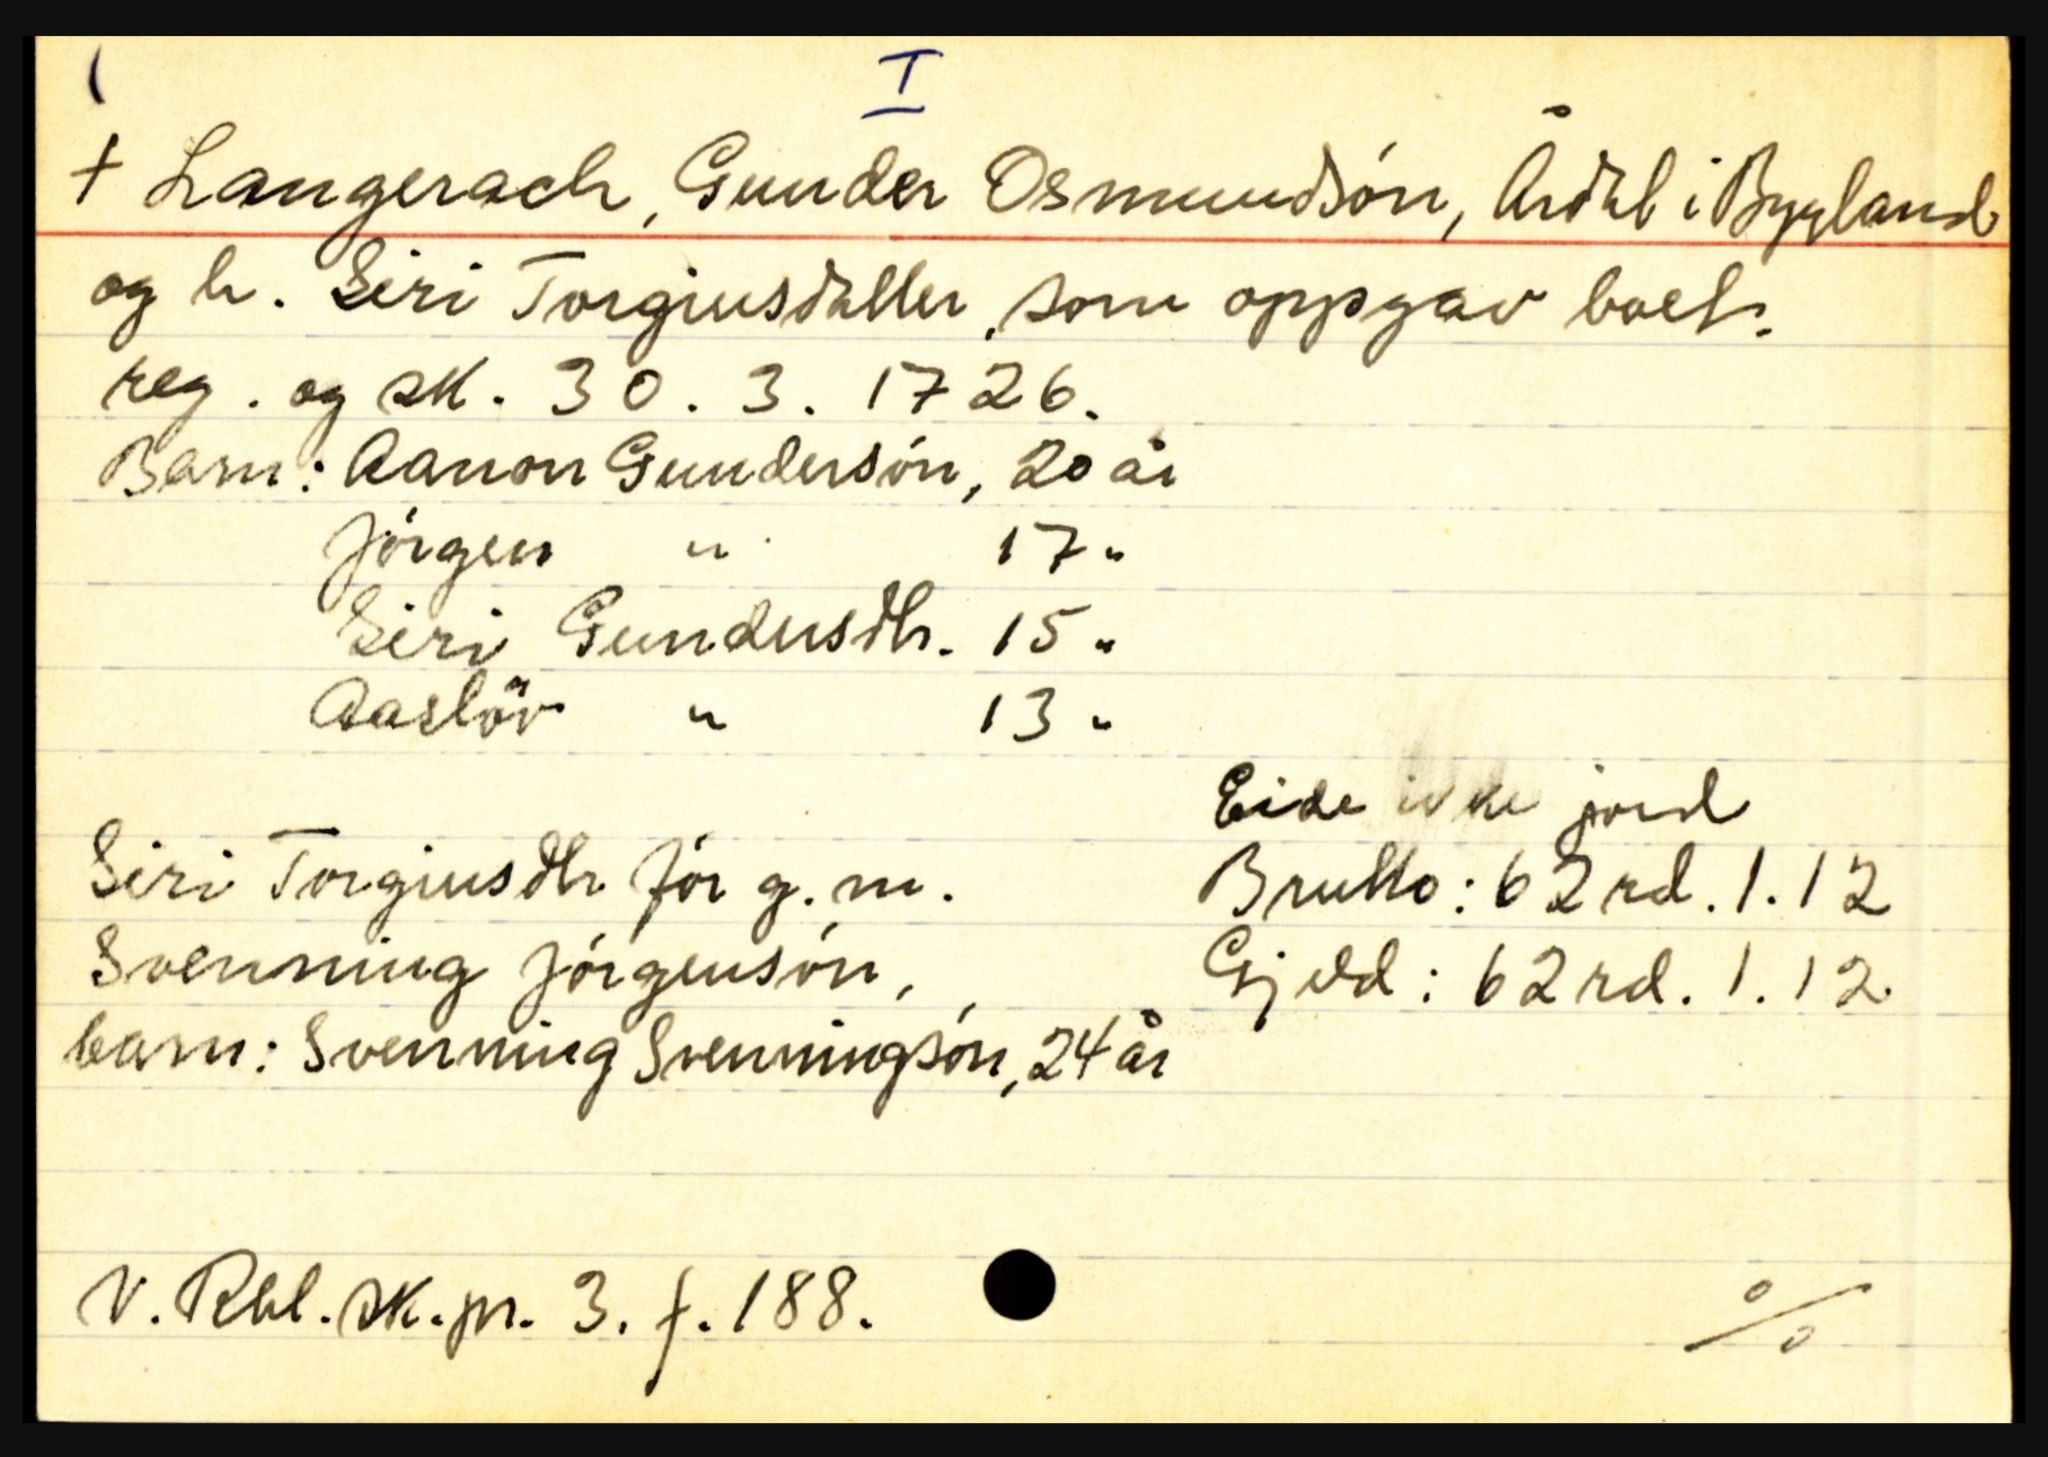 I
+ Langerach, Gunder Osmundsón, Årdal i Bygland
og h. Siri Torgiusdatter, som oppgav boet.
reg. og sk. 30. 3. 1726.
Barn: Aanon Gundersón, 20 år
Jörgen " 17 "
Siri Gundersdtr. 15 "
Aaslöv " 13 "
Eide ikke jord
Siri Torgiusdtr för g. m.
Brutto: 62 rd. 1. 12
Svenning Jörgensón,
Gjeld: 62 rd. 1. 12
barn: Svenning Svenningsón, 24 år
V. Rbl. sk. pr. 3. f. 188.
%